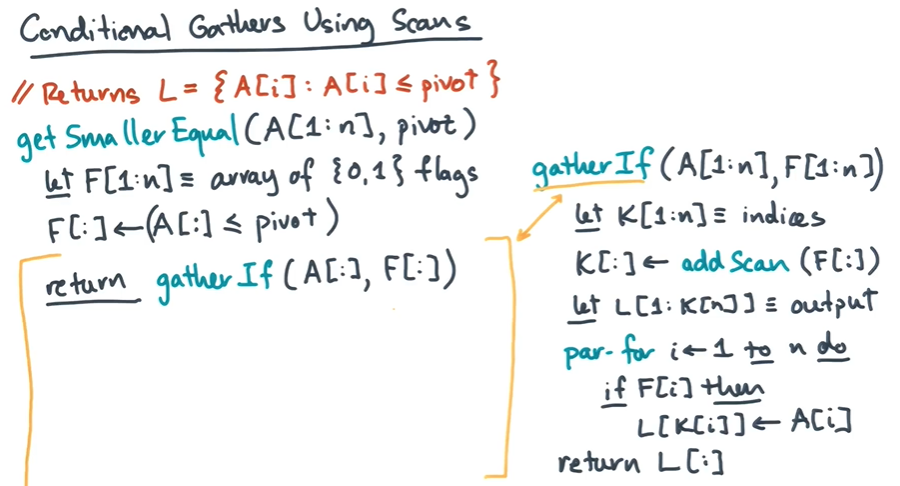 Conditional Gathers Using Scans
// Returns L = {A[i] : A[i] ≤ pivot}
getSmallerEqual(A[1:n], pivot)
let F[1:n] ≡ array of {0,1} flags
F[:] ← (A[:] ≤ pivot)
return gatherIf(A[:], F[:])
gatherIf(A[1:n], F[1:n])
let K[1:n] ≡ indices
K[:] ← addScan(F[:])
let L[1:K[n]] ≡ output
par-for i ← 1 to n do
if F[i] then
L[K[i]] ← A[i]
return L[:]